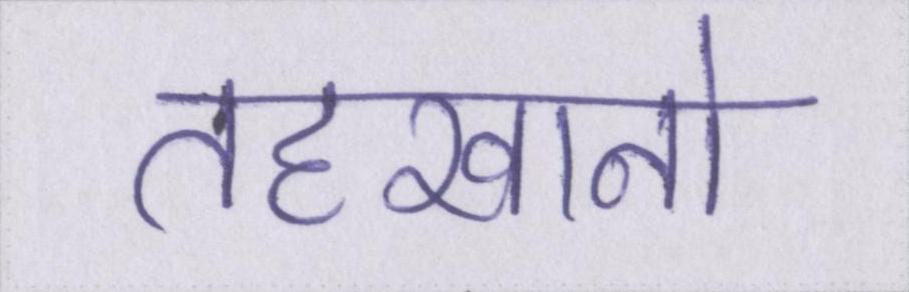 तहखानो